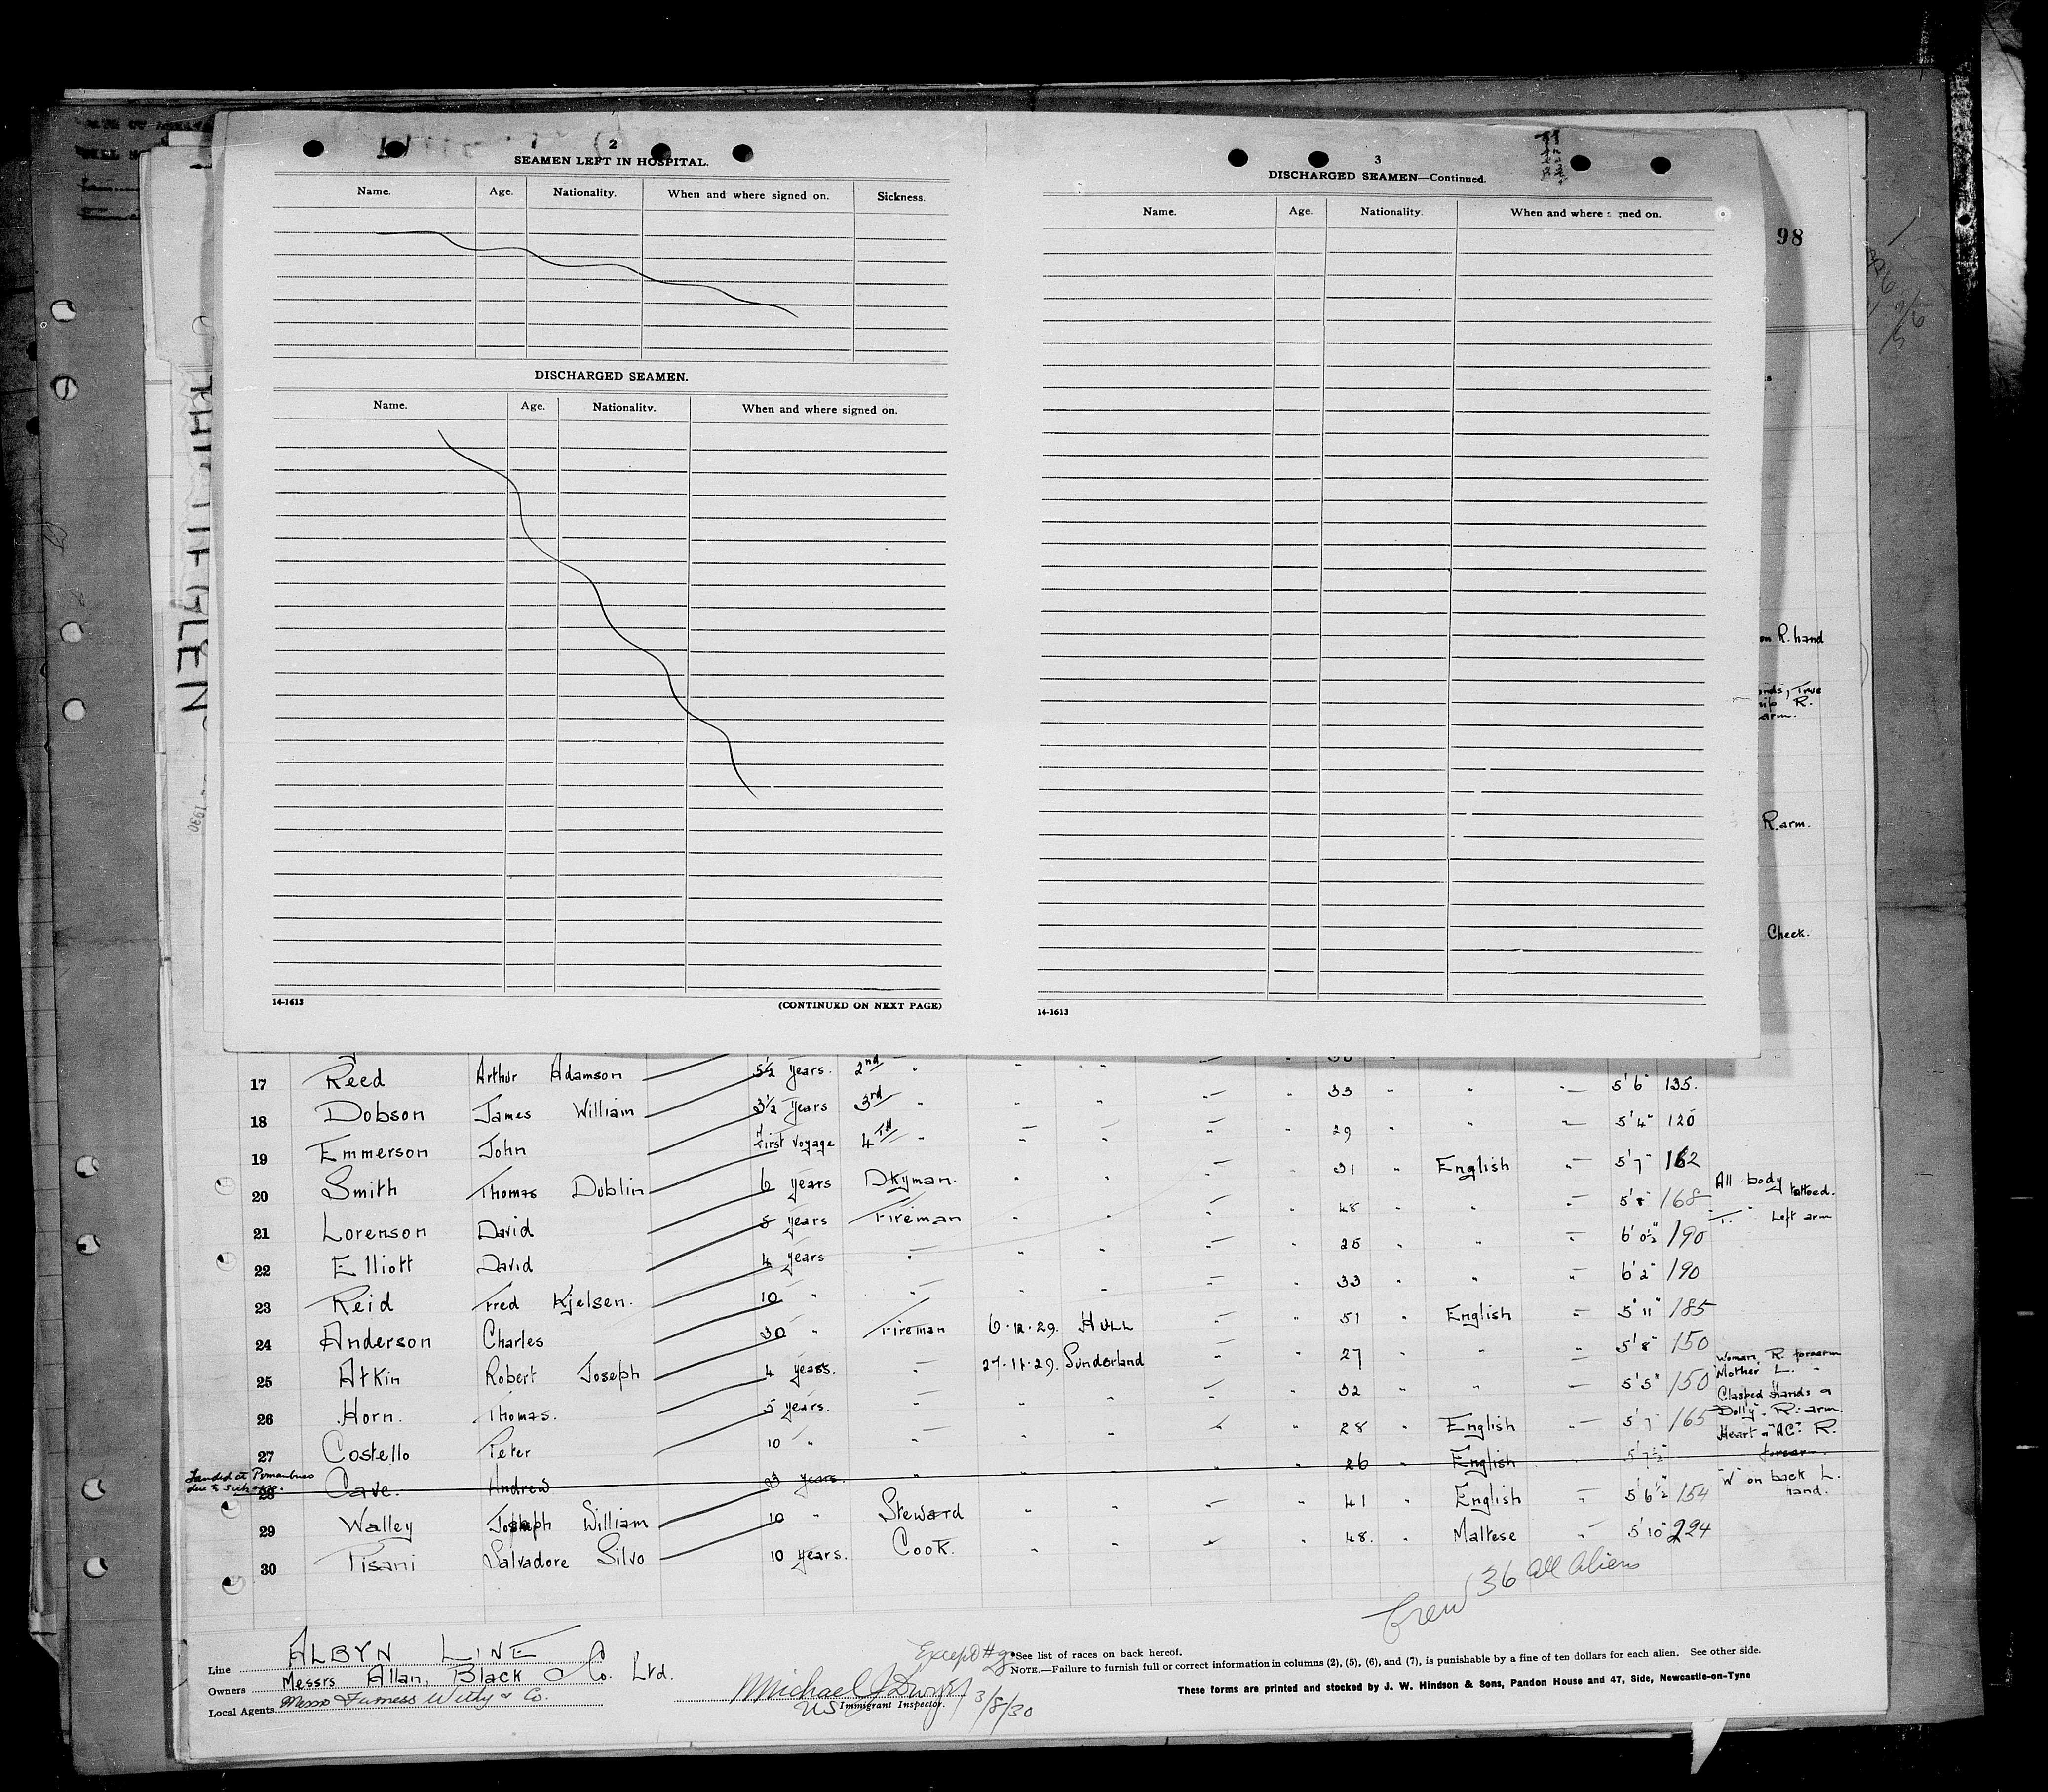 2
SEAMEN LEFT IN HOSPITAL.
Name. Age. Nationality. When and where signed on. Sickness.
DISCHARGED SEAMEN.
Name. Age. Nationality. When and where signed on.
14-1613 (CONTINUED ON NEXT PAGE)
3
DISCHARGED SEAMEN—Continued.
Name. Age. Nationality. When and where signed on.
14-1613
98
on R. hand
True
R.
arm.
R. arm.
Cheek.
1930
17 Reed Arthur Adamson 5½ years. 2nd " " " " — " 33 " " — 5'6" 135.
18 Dobson James William 3½ years 3rd " " " — " 29 " " — 5'4" 120
19 Emmerson John First voyage 4TH " " " — " 31 " English — 5'7" 162
20 Smith Thomas Dublin 6 years Dkyman. " " — " 48 " " — 5'8" 168 All body tattooed.
21 Lorenson David 8 years Fireman " " — " 25 " " — 6'0½" 190 Left arm
22 Elliott David 4 years " " " — " 33 " " — 6'2" 190
23 Reid Fred Kjelsen. 10 " " " " — " 51 " English — 5'11" 185
24 Anderson Charles 30 " Fireman 6.12.29. HULL — " 27 " " — 5'8" 150
25 Atkin Robert Joseph 4 years. " 27.11.29. Sunderland — " 32 " " — 5'5" 150 Woman, R. forearm "Mother" L. "
26 Horn. Thomas. 5 years. " " " — " 28 " English — 5'7" 165 Clasped Hands & "Dolly". R. arm.
27 Costello Peter 10 " " " " " 26 " English " 5'7½" Heart & "AC" R. forearm.
Landed at
due to
28 Cave. Andrew 3 years. " " " — " 41 " English — 5'6½" 154 "W" on back L. hand.
29 Walley Joseph William 10 " Steward " " — " 48. " Maltese " 5'10" 224
30 Pisani Salvadore Silvo 10 years. Cook. " "
Crew 36 all Aliens
Line ALBYN LINE
Owners Messrs Allan, Black & Co. Ltd.
Local Agents Messrs Furness Withy & Co.
Except #28
Michael J Dwyer 3/8/30
US Immigrant Inspector.
*See list of races on back hereof.
NOTE.—Failure to furnish full or correct information in columns (2), (5), (6), and (7), is punishable by a fine of ten dollars for each alien. See other side.
These forms are printed and stocked by J. W. Hindson & Sons, Pandon House and 47, Side, Newcastle-on-Tyne